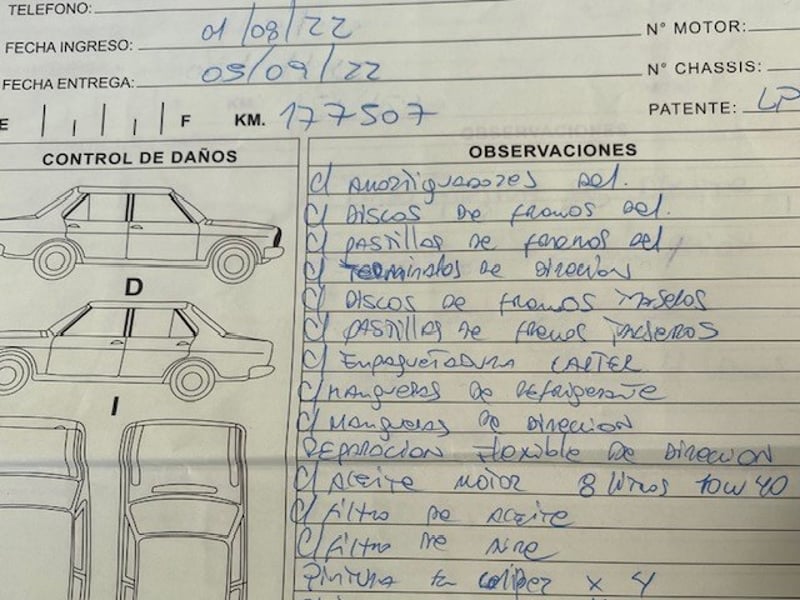 TELEFONO:
FECHA INGRESO: 01/08/22
N° MOTOR:
FECHA ENTREGA: 05/09/22
N° CHASSIS:
E F KM. 177507
PATENTE: LP
CONTROL DE DAÑOS
OBSERVACIONES
C/ Amortiguadores Del.
C/ Discos De frenos Del.
C/ Pastillas De frenos Del
C/ Terminales De Direcion
C/ Discos De frenos Traseros
C/ Pastillas De frenos Traseros
C/ Empaquetadura CARTER
C/ Mangueras De Refrigerante
C/ Mangueras De Direcion
Reparacion flexible De Direcion
C/ Aceite Motor 8 litros 10w40
C/ filtro De Aceite
C/ filtro De Aire
Pintura caliper x 4
D
I